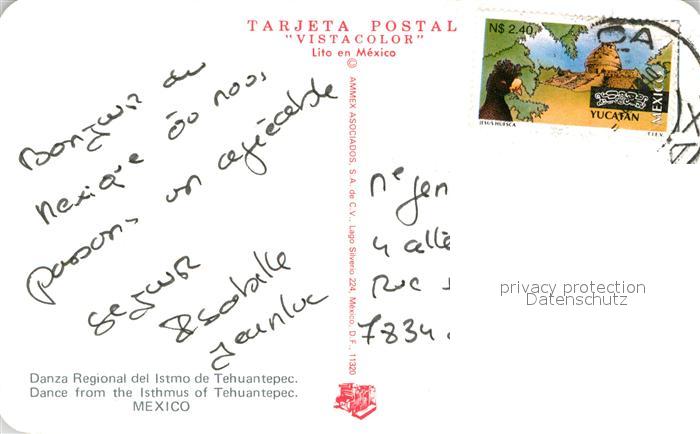 TARJETA POSTAL
"VISTACOLOR"
Lito en México
Bonjour du
Mexique où nous
passons un agréable
séjour
Isabelle
Jeanluc
Danza Regional del Istmo de Tehuantepec.
Dance from the Isthmus of Tehuantepec.
MEXICO
© AMMEX ASOCIADOS, S.A. de C.V., Lago Silverio 224, México, D.F., 11320
N$ 2.40
JESUS HUESCA
YUCATAN
T.I.E.V.
MEXICO
OA
Me Jen
4 allé
Rue
7834
privacy protection
Datenschutz